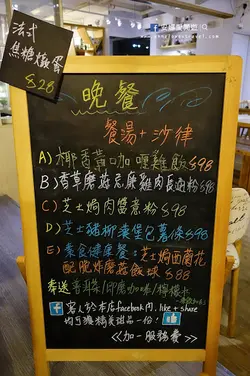 法式
焦糖燉蛋
$28
晚餐
餐湯+沙律
A) 椰香黃咖喱雞飯 $98
B) 香草蘑菇忌廉雞肉長通粉 $98
C) 芝士焗肉醬意粉 $98
D) 芝士豬柳漢堡包薯條 $98
E) 素食健康餐：芝士焗西蘭花
配脆炸蘑菇飯球 $88
奉送
咖啡/檸檬水
客人於本店facebook內，like + share
均可獲精美甜品一份！
<<加一服務費>>